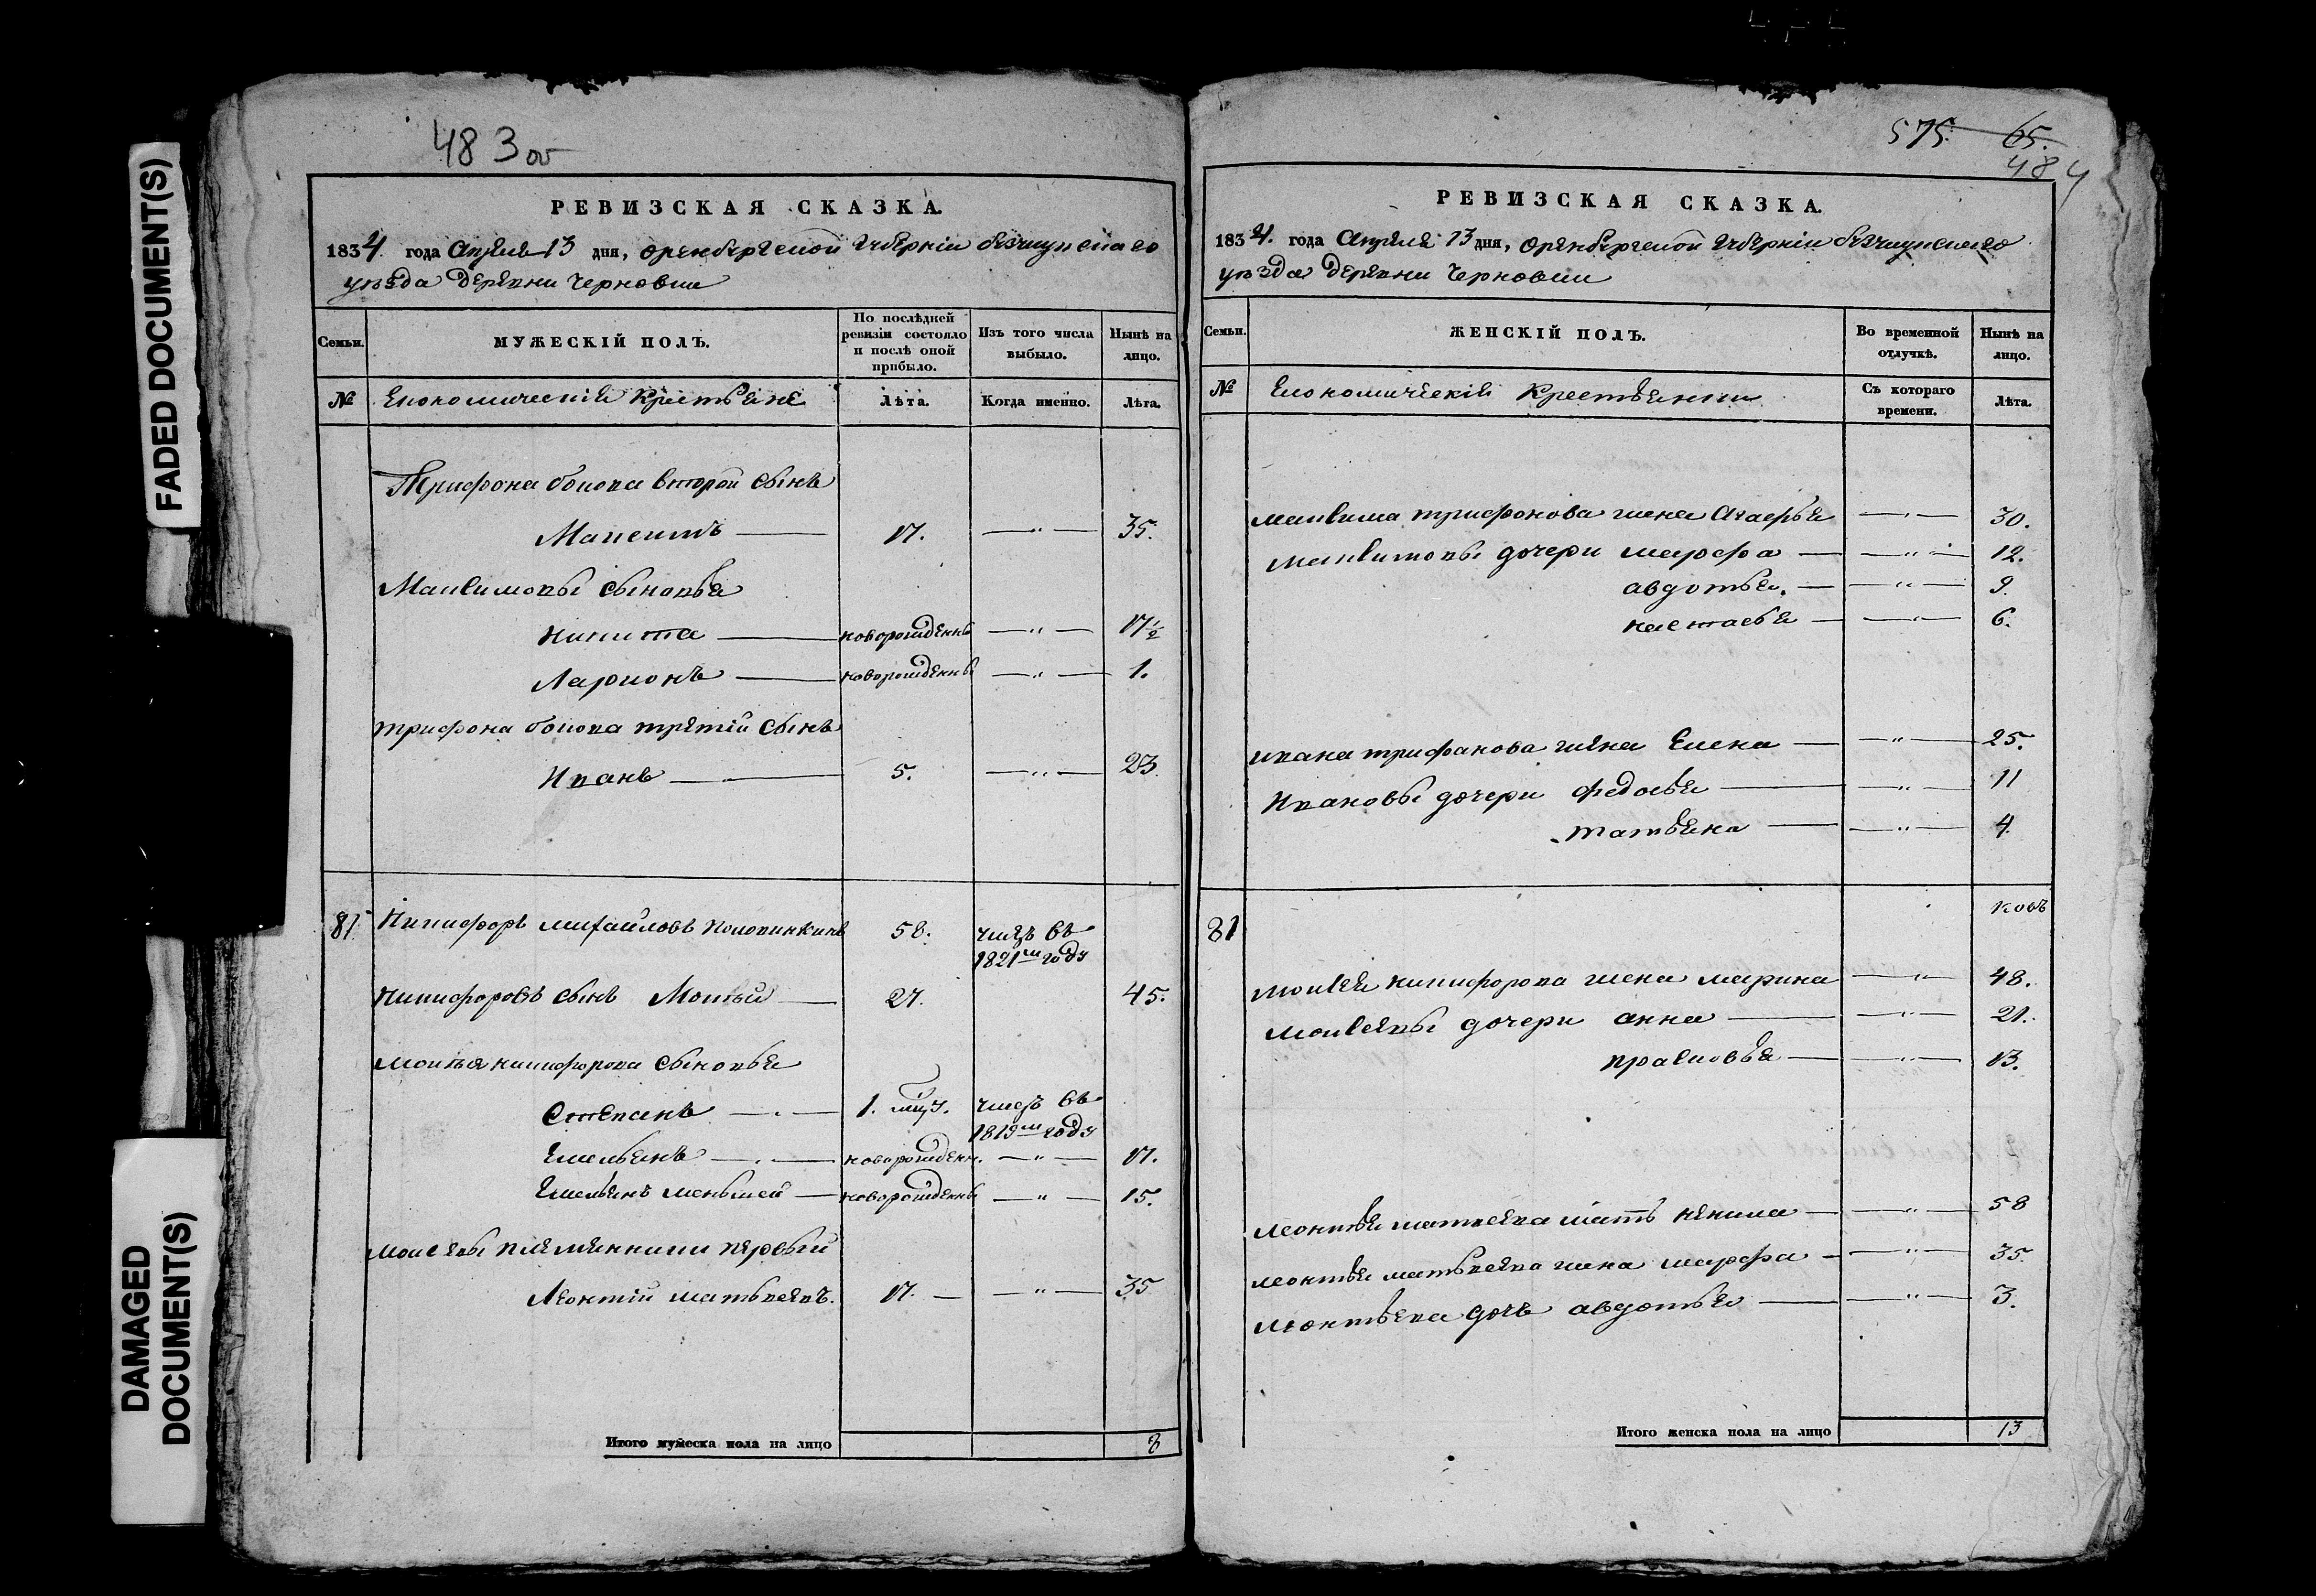 FADED DOCUMENT(S)
DAMAGED
DOCUMENT(S)
483 об
РЕВИЗСКАЯ СКАЗКА.
1834 года Апреля 13 дня, Оренбергской губернiи
уѣзда деревни Черновки
Семьи.
МУЖЕСКІЙ ПОЛЪ.
По послѣдней
ревизіи состояло
и послѣ оной
прибыло.
Изъ того числа
выбыло.
Нынѣ на
лицо.
№
Економическiе Крестьяне
Лѣта.
Когда именно.
Лѣта.
Трифона Бокова второй сынъ
17. 35.
Максимовы сыновья
Никита новорожденны 17½
Ларионъ новорожденны 1.
трифона Бокова третiй сынъ
Иванъ 5. 23.
81 Никифоръ михайловъ 58. умеръ въ
1821м году
Никифоровъ сынъ Мосѣй 27. 45.
мосѣя никифорова сыновья
Степанъ 1. мцъ. умеръ въ
1819м году
Емельянъ новорожденн. 17.
Емельянъ меньшей новорожденны 15.
мосеевы племянники первый
Леонтiй матьвеевъ. 17. 35
Итого мужеска пола на лицо 8
575. 65.
484
РЕВИЗСКАЯ СКАЗКА.
1834. года Апреля 13 дня, Оренбергской губернiи
уѣзда деревни Черновки
Семьи.
ЖЕНСКІЙ ПОЛЪ.
Во временной
отлучкѣ.
Нынѣ на
лицо.
№
Економическiя Крестьянки
Съ котораго
времени.
Лѣта.
максима трифонова жена Агафья 30.
максимовы дочери марфа 12.
авдотья. 9.
настасья 6.
ивана трифанова жена Елена 25.
Ивановы дочери федосья 11
татьяна 4.
81
мосея никифорова жена марина 48.
мосеевы дочери анна 21.
прасковья 13.
леонтья матвеева мать ненила 58
леонтья матьвеева жена марфа 35.
леонтьева дочь авдотья 3.
Итого женска пола на лицо 13